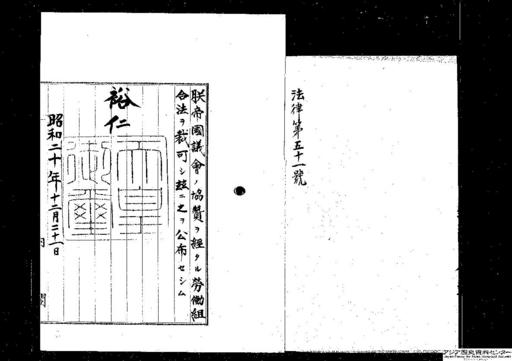 法律第五十一號
朕帝國議會ノ協賛ヲ經タル勞働組
合法ヲ裁可シ茲ニ之ヲ公布セシム
裕仁
天皇御璽
昭和二十年十二月二十一日
内閣
アジア歴史資料センター